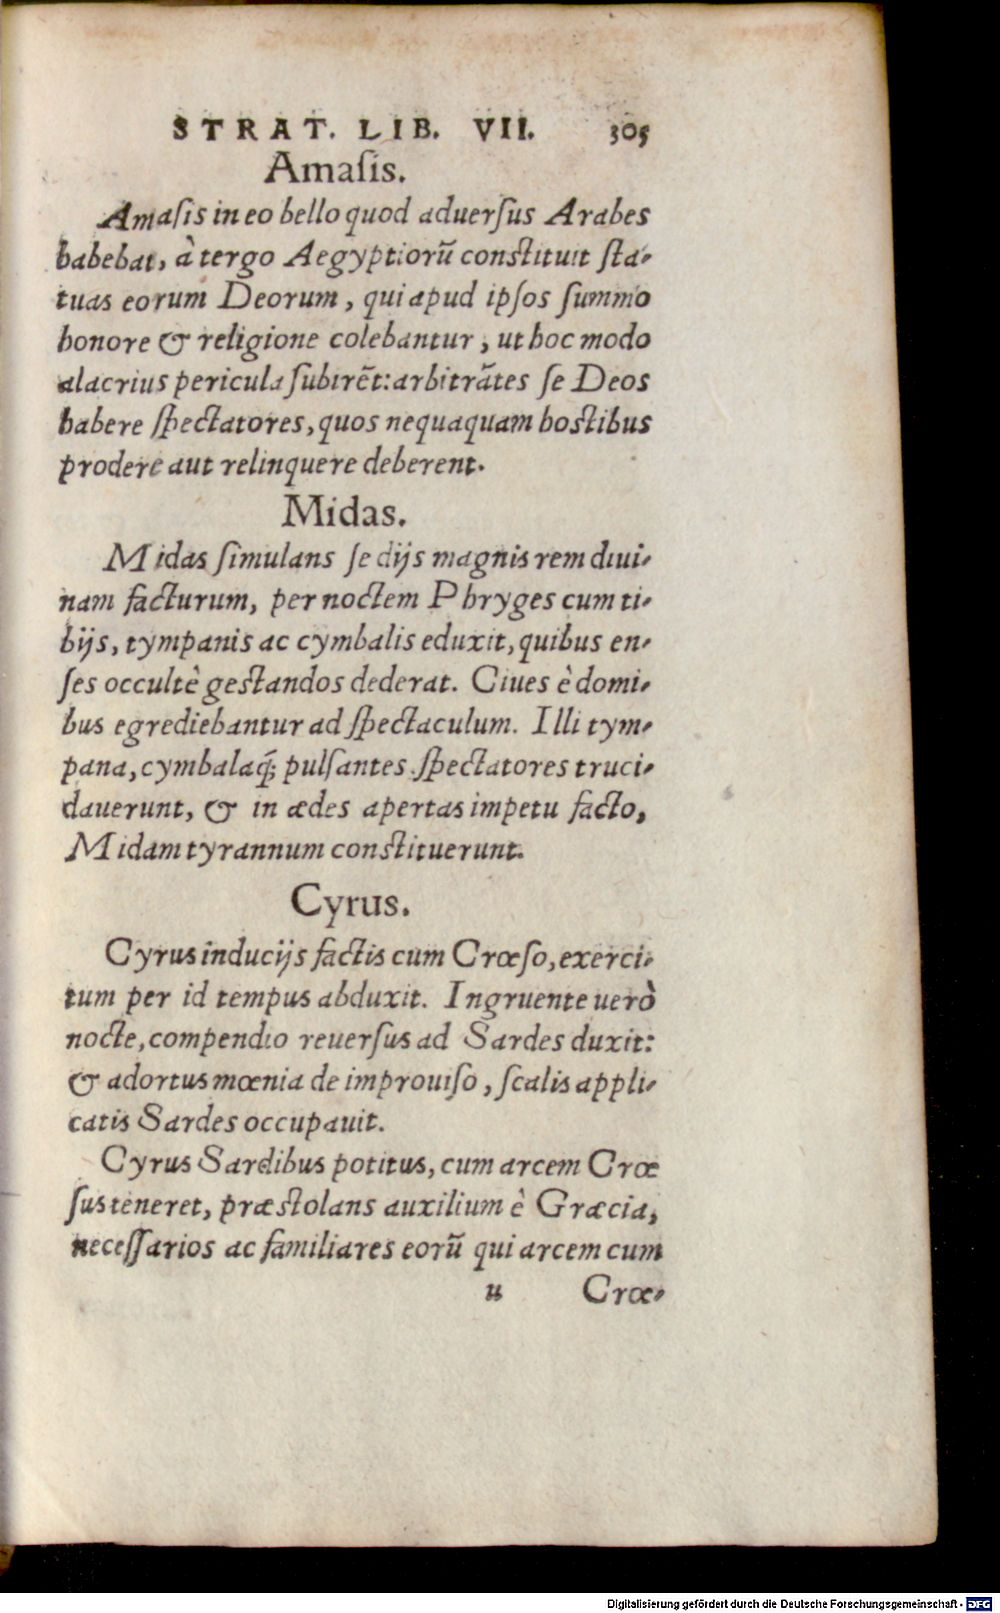 STRAT. LIB. VII. 305
Amaſis.
Amaſis in eo bello quod aduerſus Arabes
habebat, à tergo Aegyptiorũ conſtituit ſta-
tuas eorum Deorum, qui apud ipſos ſummo
honore & religione colebantur, ut hoc modo
alacrius pericula ſubirẽt: arbitrãtes ſe Deos
habere ſpectatores, quos nequaquam hoſtibus
prodere aut relinquere deberent.
Midas.
Midas ſimulans ſe dijs magnis rem diui-
nam facturum, per noctem Phryges cum ti-
bijs, tympanis ac cymbalis eduxit, quibus en-
ſes occultè geſtandos dederat. Ciues è domi-
bus egrediebantur ad ſpectaculum. Illi tym-
pana, cymbalaq́; pulſantes ſpectatores truci-
dauerunt, & in ædes apertas impetu facto,
Midam tyrannum conſtituerunt.
Cyrus.
Cyrus inducijs factis cum Crœſo, exerci-
tum per id tempus abduxit. Ingruente uerò
nocte, compendio reuerſus ad Sardes duxit:
& adortus mœnia de improuiſo, ſcalis appli-
catis Sardes occupauit.
Cyrus Sardibus potitus, cum arcem Crœ
ſus teneret, præſtolans auxilium è Græcia,
neceſſarios ac familiares eorũ qui arcem cum
u Crœ-
Digitalisierung gefördert durch die Deutsche Forschungsgemeinschaft - DFG